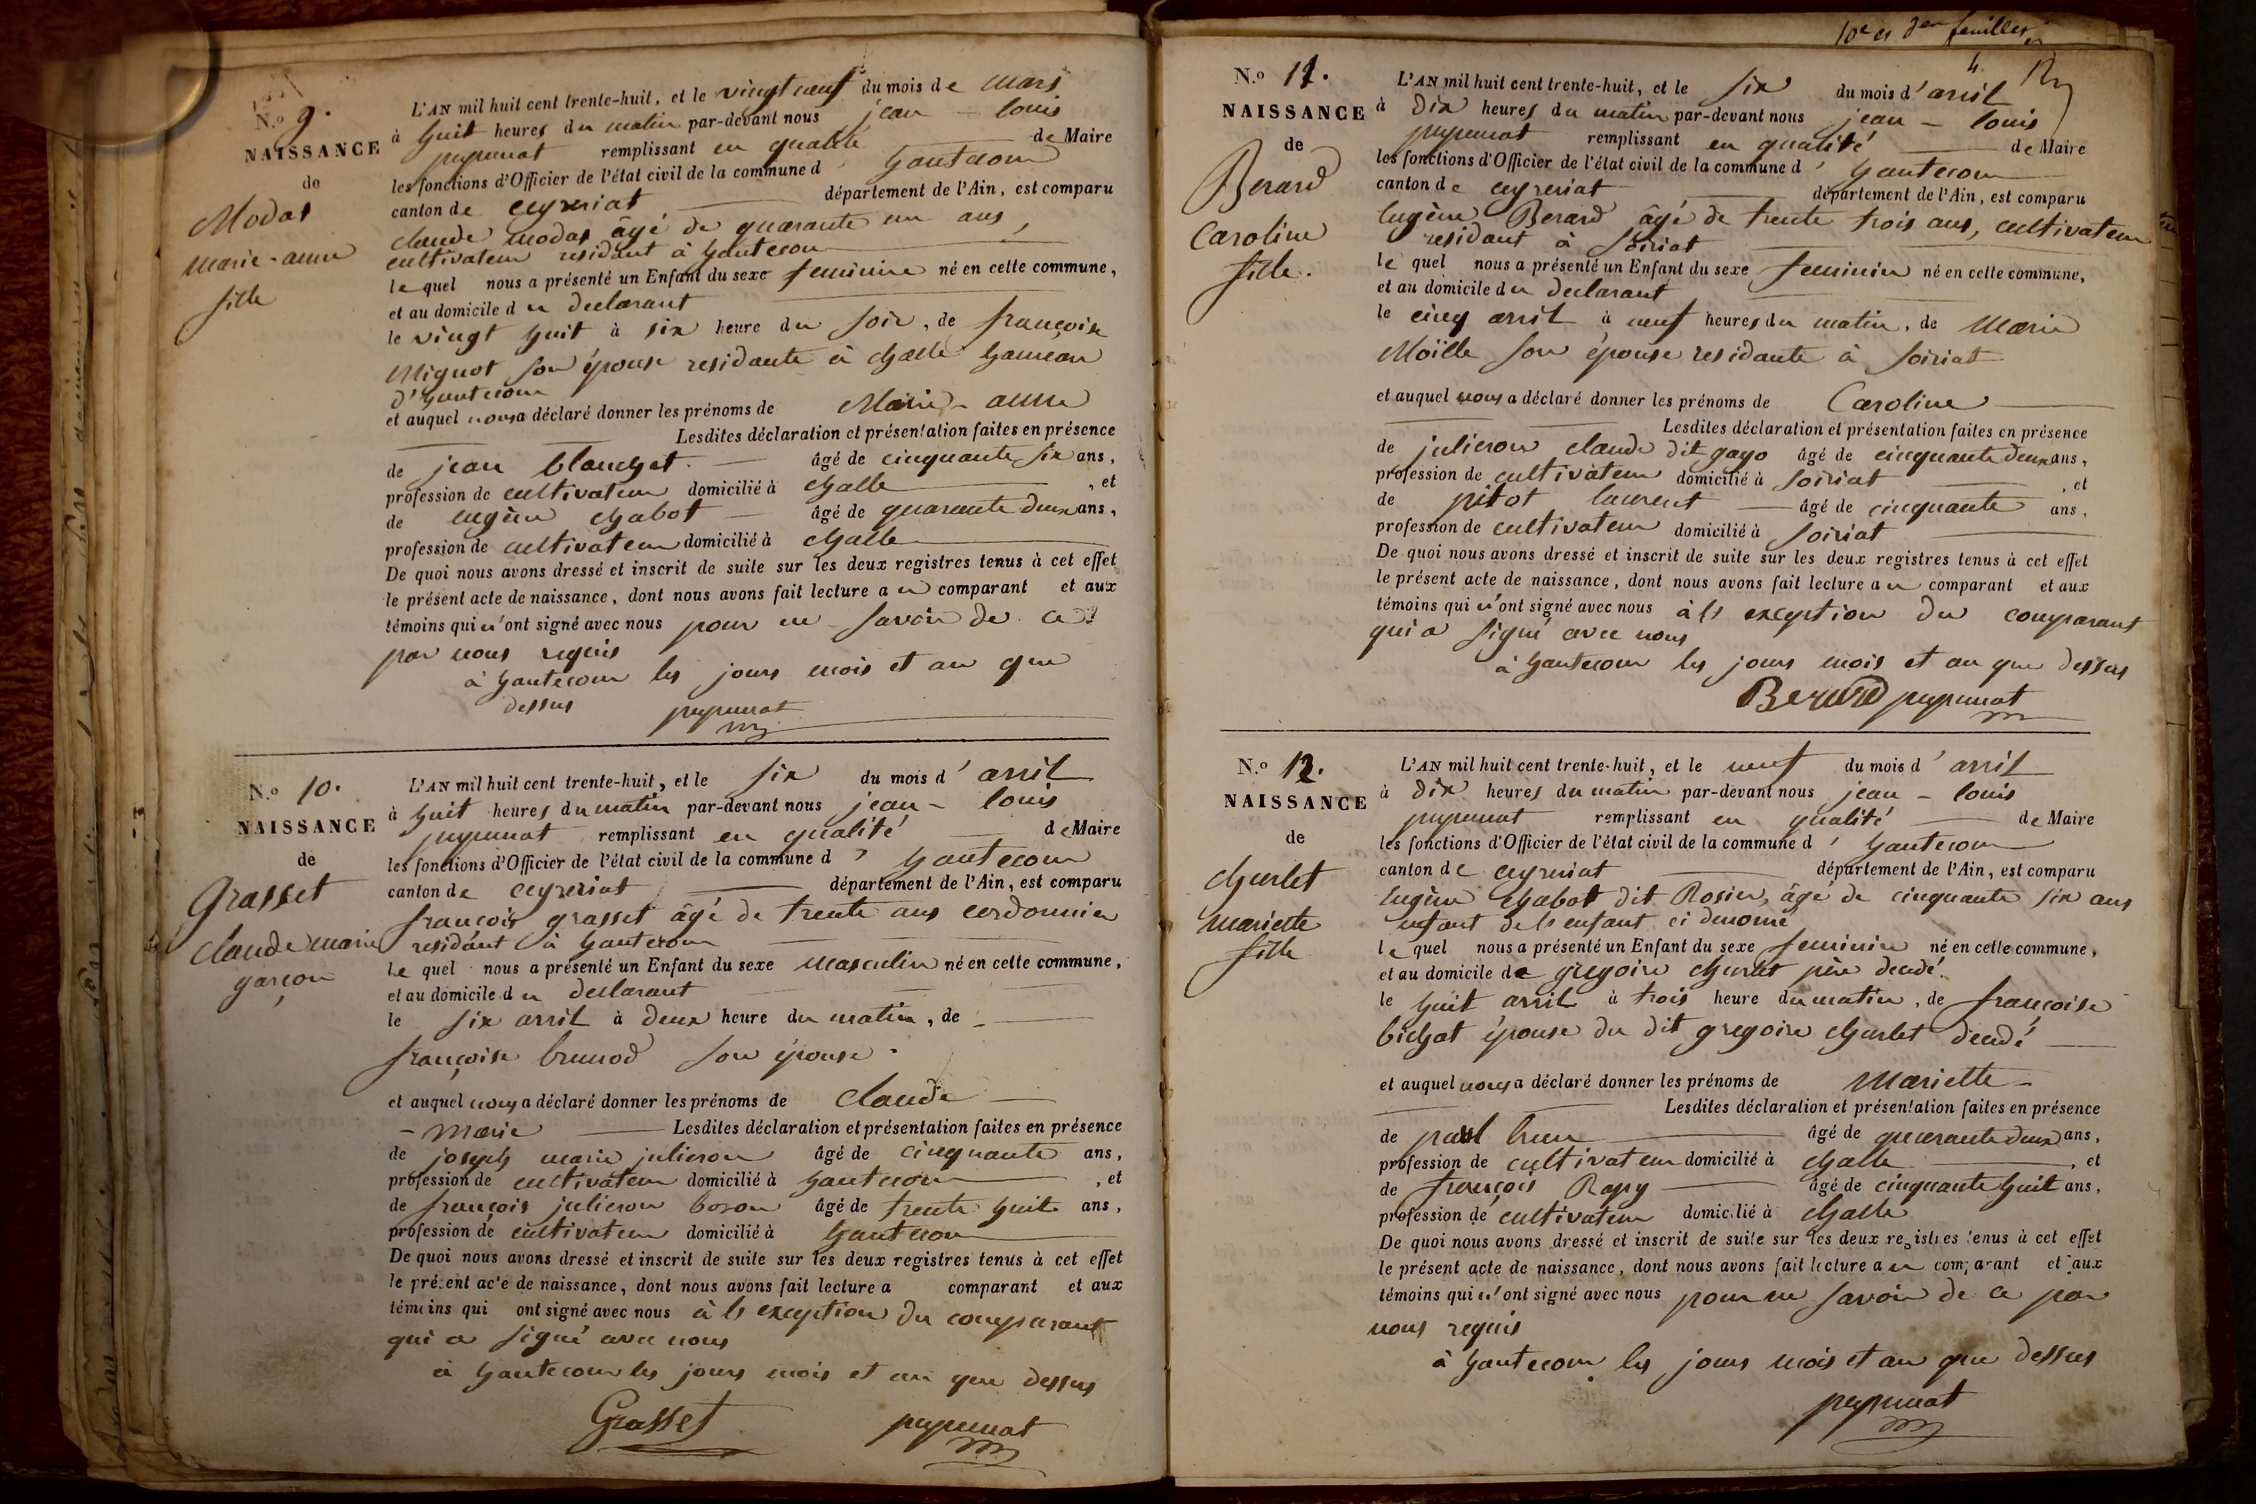 N.o 9.
NAISSANCE
de
Modas
marie-anne
fille
L'AN mil huit cent trente-huit, et le vingt neuf du mois de mars
à huit heures du matin par-devant nous jean-louis
remplissant en qualité de Maire
les fonctions d'Officier de l'état civil de la commune d hautecour
canton de ceyzeriat département de l'Ain, est comparu
claude modas âgé de quarante un ans,
cultivateur residant à hautecour
le quel nous a présenté un Enfant du sexe feminine né en cette commune,
et au domicile du declarant
le vingt huit à six heure du soir, de françoise
Mignot son épouse residante à challe hameau
d'hautecour
et auquel nous a déclaré donner les prénoms de Marie-anne
Lesdites déclaration et présentation faites en présence
de jean blanchet âgé de cinquante six ans,
profession de cultivateur domicilié à challe, et
de eugène chabot âgé de quarante deux ans,
profession de cultivateur domicilié à challe
De quoi nous avons dressé et inscrit de suite sur les deux registres tenus à cet effet
le présent acte de naissance, dont nous avons fait lecture au comparant et aux
témoins qui n'ont signé avec nous pour ne savoir de ce
par nous requis
à hautecour les jours mois et an que
dessus
N.o 10.
NAISSANCE
de
Grasset
claude marie
garçon
L'AN mil huit cent trente-huit, et le six du mois d'avril
à huit heures du matin par-devant nous jean-louis
remplissant en qualité de Maire
les fonctions d'Officier de l'état civil de la commune d'hautecour
canton de ceyzeriat département de l'Ain, est comparu
françois grasset âgé de trente ans cordonnier
residant à hautecour
le quel nous a présenté un Enfant du sexe masculin né en cette commune,
et au domicile du declarant
le six avril à deux heure du matin, de
françoise brunod son épouse.
et auquel nous a déclaré donner les prénoms de claude
-marie Lesdites déclaration et présentation faites en présence
de joseph marie julieron âgé de cinquante ans,
profession de cultivateur domicilié à hautecour, et
de françois julieron bozon âgé de trente huit ans,
profession de cultivateur domicilié à hautecour
De quoi nous avons dressé et inscrit de suite sur les deux registres tenus à cet effet
le présent acte de naissance, dont nous avons fait lecture a comparant et aux
témoins qui ont signé avec nous à l'exception du comparant
qui a signé avec nous
à hautecour les jours mois et an que dessus
Grasset
10e et der feuilles
4.
N.o 11.
NAISSANCE
de
Berard
Caroline
fille.
L'AN mil huit cent trente-huit, et le six du mois d'avril
à dix heures du matin par-devant nous jean-louis
remplissant en qualité de Maire
les fonctions d'Officier de l'état civil de la commune d'hautecour
canton de ceyzeriat département de l'Ain, est comparu
Eugène Berard âgé de trente trois ans, cultivateur
residant à soiriat
le quel nous a présenté un Enfant du sexe feminin né en cette commune,
et au domicile du declarant
le cinq avril à neuf heures du matin, de Marie
Moïlle son épouse residante à soiriat
et auquel nous a déclaré donner les prénoms de Caroline
Lesdites déclaration et présentation faites en présence
de julieron claude dit gayo âgé de cinquante deux ans,
profession de cultivateur domicilié à soiriat, et
de pitot laurent âgé de cinquante ans,
profession de cultivateur domicilié à soiriat
De quoi nous avons dressé et inscrit de suite sur les deux registres tenus à cet effet
le présent acte de naissance, dont nous avons fait lecture au comparant et aux
témoins qui n'ont signé avec nous à l'exception du comparant
qui a signé avec nous
à hautecour les jours mois et an que dessus
Berard
N.o 12.
NAISSANCE
de
Churlet
mariette
fille
L'AN mil huit cent trente-huit, et le neuf du mois d'avril
à dix heures du matin par-devant nous jean-louis
remplissant en qualité de Maire
les fonctions d'Officier de l'état civil de la commune d'hautecour
canton de ceyzeriat département de l'Ain, est comparu
Eugène chabot dit Rosier, âgé de cinquante six ans
de l'enfant ci denomé
le quel nous a présenté un Enfant du sexe feminin né en cette commune,
et au domicile de gregoire churlet père decedé.
le huit avril à trois heure du matin, de françoise
bichat épouse du dit gregoire churlet decedé
et auquel nous a déclaré donner les prénoms de Mariette
Lesdites déclaration et présentation faites en présence
de paul brun âgé de quarante deux ans,
profession de cultivateur domicilié à challe, et
de françois Rapy âgé de cinquante huit ans,
profession de cultivateur domicilié à challe
De quoi nous avons dressé et inscrit de suite sur les deux registres tenus à cet effet
le présent acte de naissance, dont nous avons fait lecture au comparant et aux
témoins qui n'ont signé avec nous pour ne savoir de ce par
nous requis
à hautecour les jours mois et an que dessus